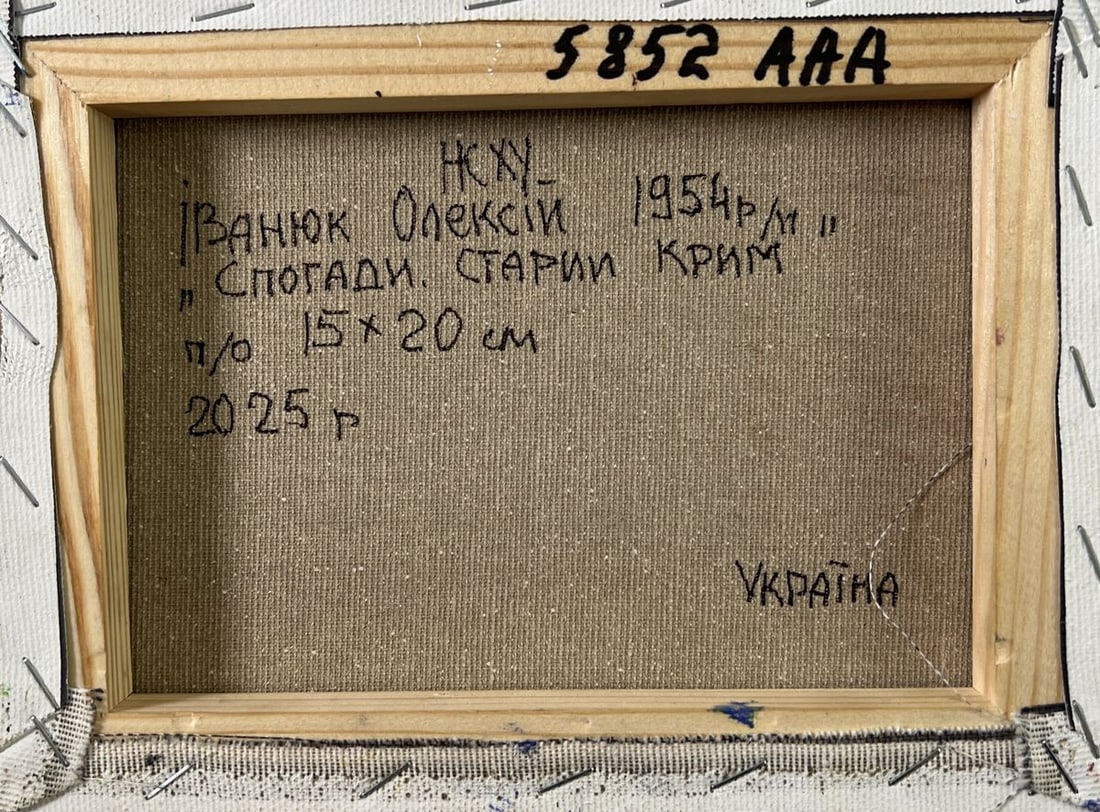 5852 ААА
НСХУ
ІВАНЮК Олексій 1954р/н "
„ Спогади. Старий Крим
п/о 15×20 см
2025 р
УКРАЇНА